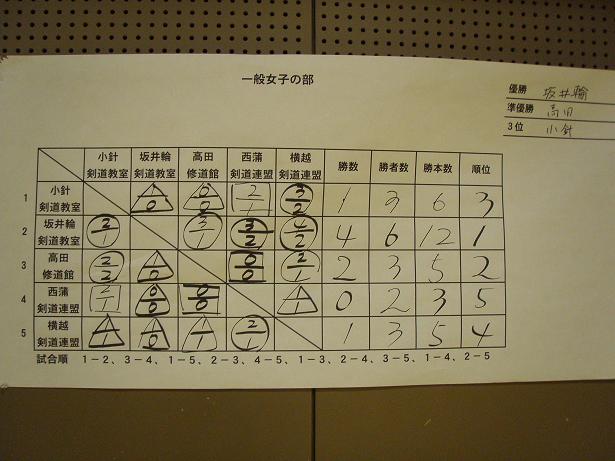 一般女子の部
優勝 坂井輪
準優勝 高田
3位 小針
小針 坂井輪 高田 西蒲 横越 勝数 勝者数 勝本数 順位
剣道教室 剣道教室 修道館 剣道連盟 剣道連盟
1 小針 剣道教室 1/0 0/0 2/1 3/2 1 3 6 3
2 坂井輪 剣道教室 2/1 3/1 3/2 4/2 4 6 12 1
3 高田 修道館 2/2 1/0 0/0 2/1 2 3 5 2
4 西蒲 剣道連盟 2/1 0/0 0/0 1/1 0 2 3 5
5 横越 剣道連盟 1/1 1/0 1/1 2/1 1 3 5 4
試合順 1-2、3-4、1-5、2-3、4-5、1-3、2-4、3-5、1-4、2-5